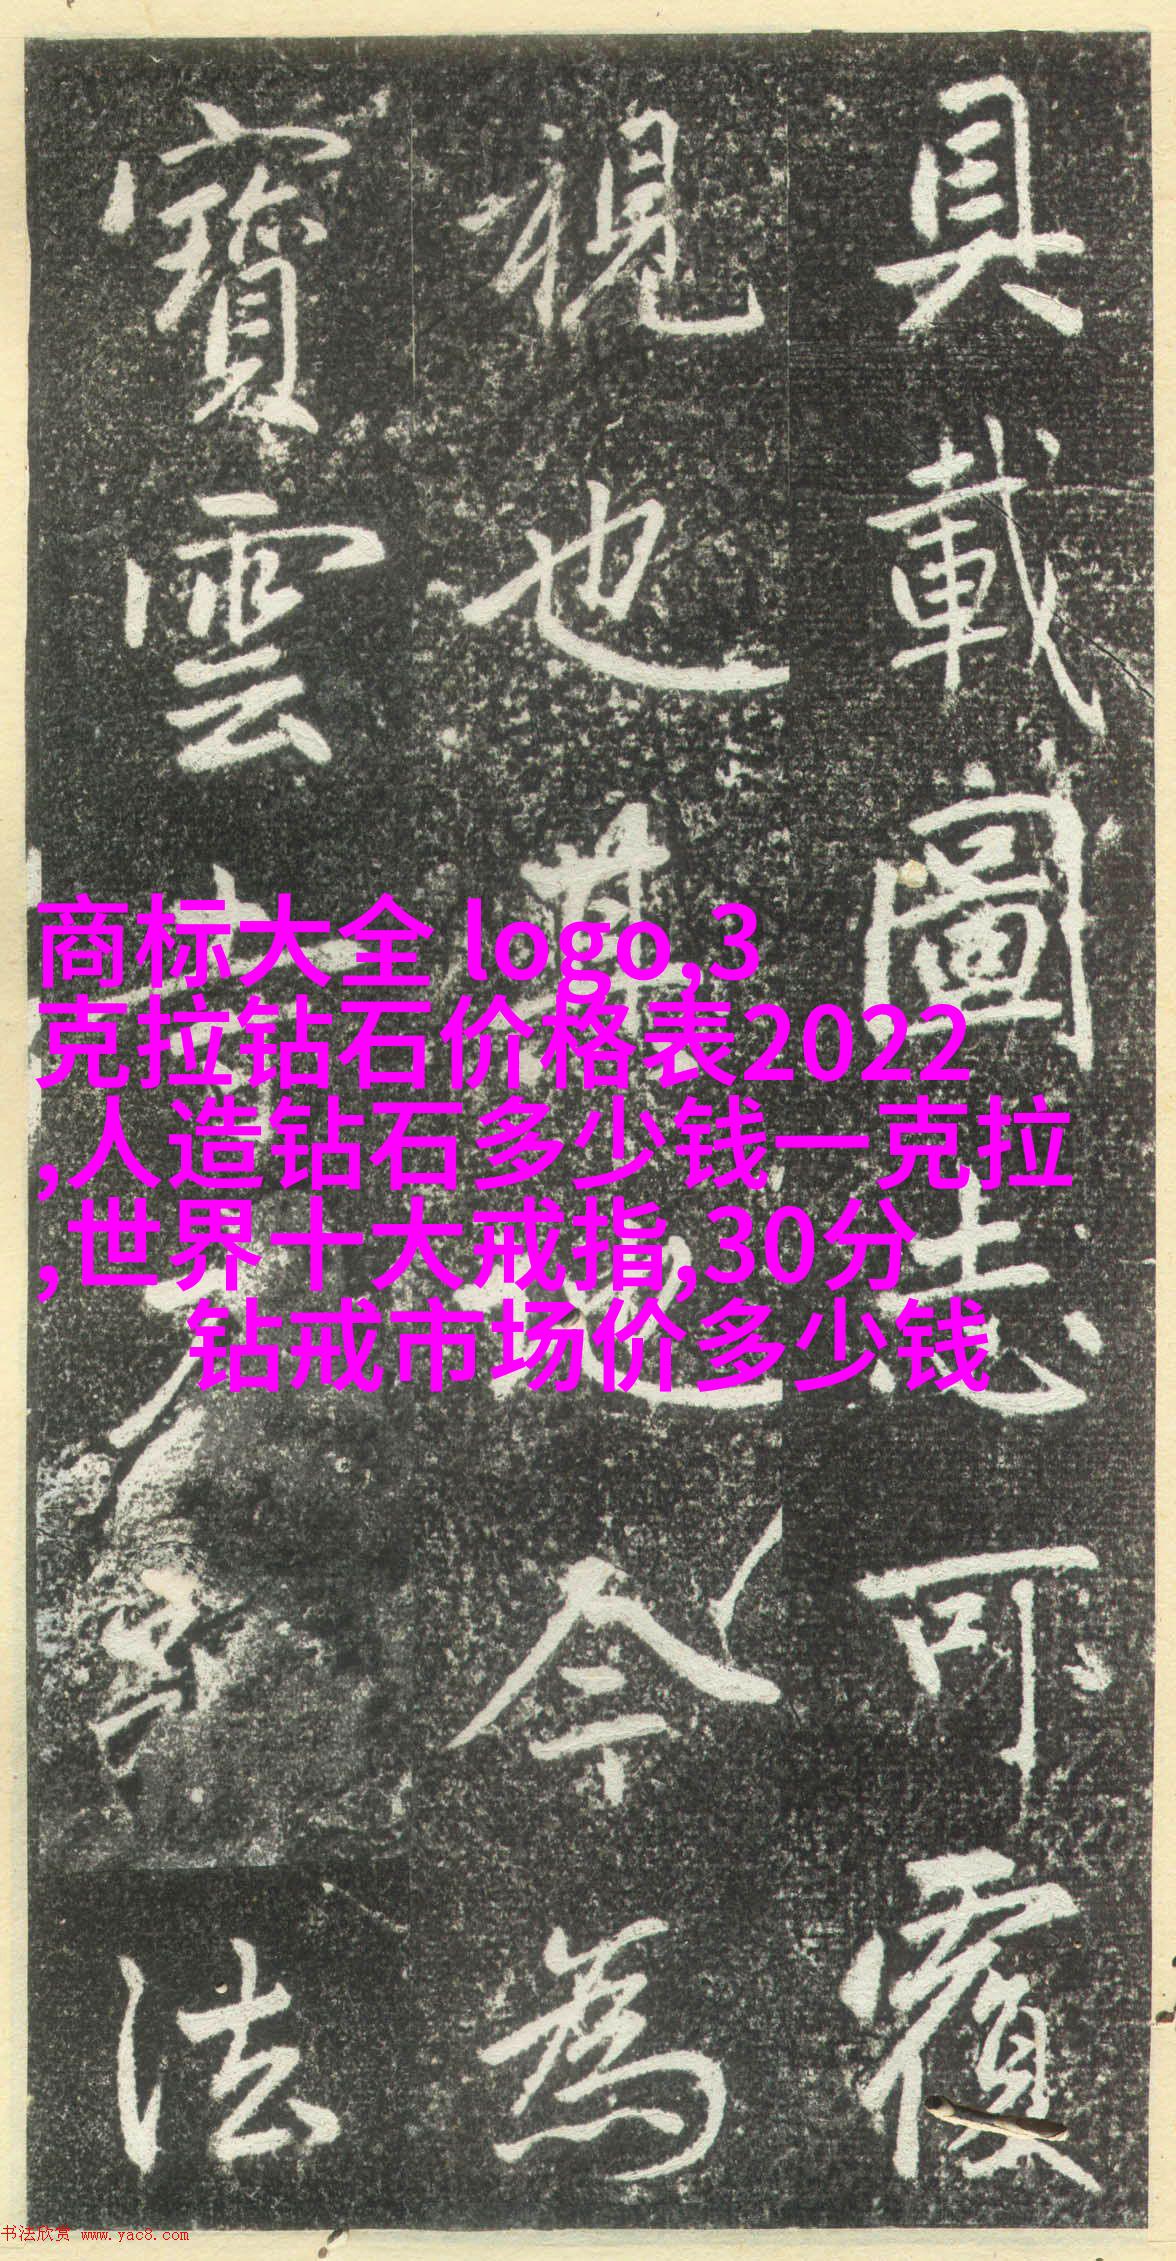 具載圖志可覆
視也其地今為
寶雲
法
商标大全 logo,3
克拉钻石价格表2022
,人造钻石多少钱一克拉
,世界十大戒指,30分
钻戒市场价多少钱
书法欣赏 www.yac8.com